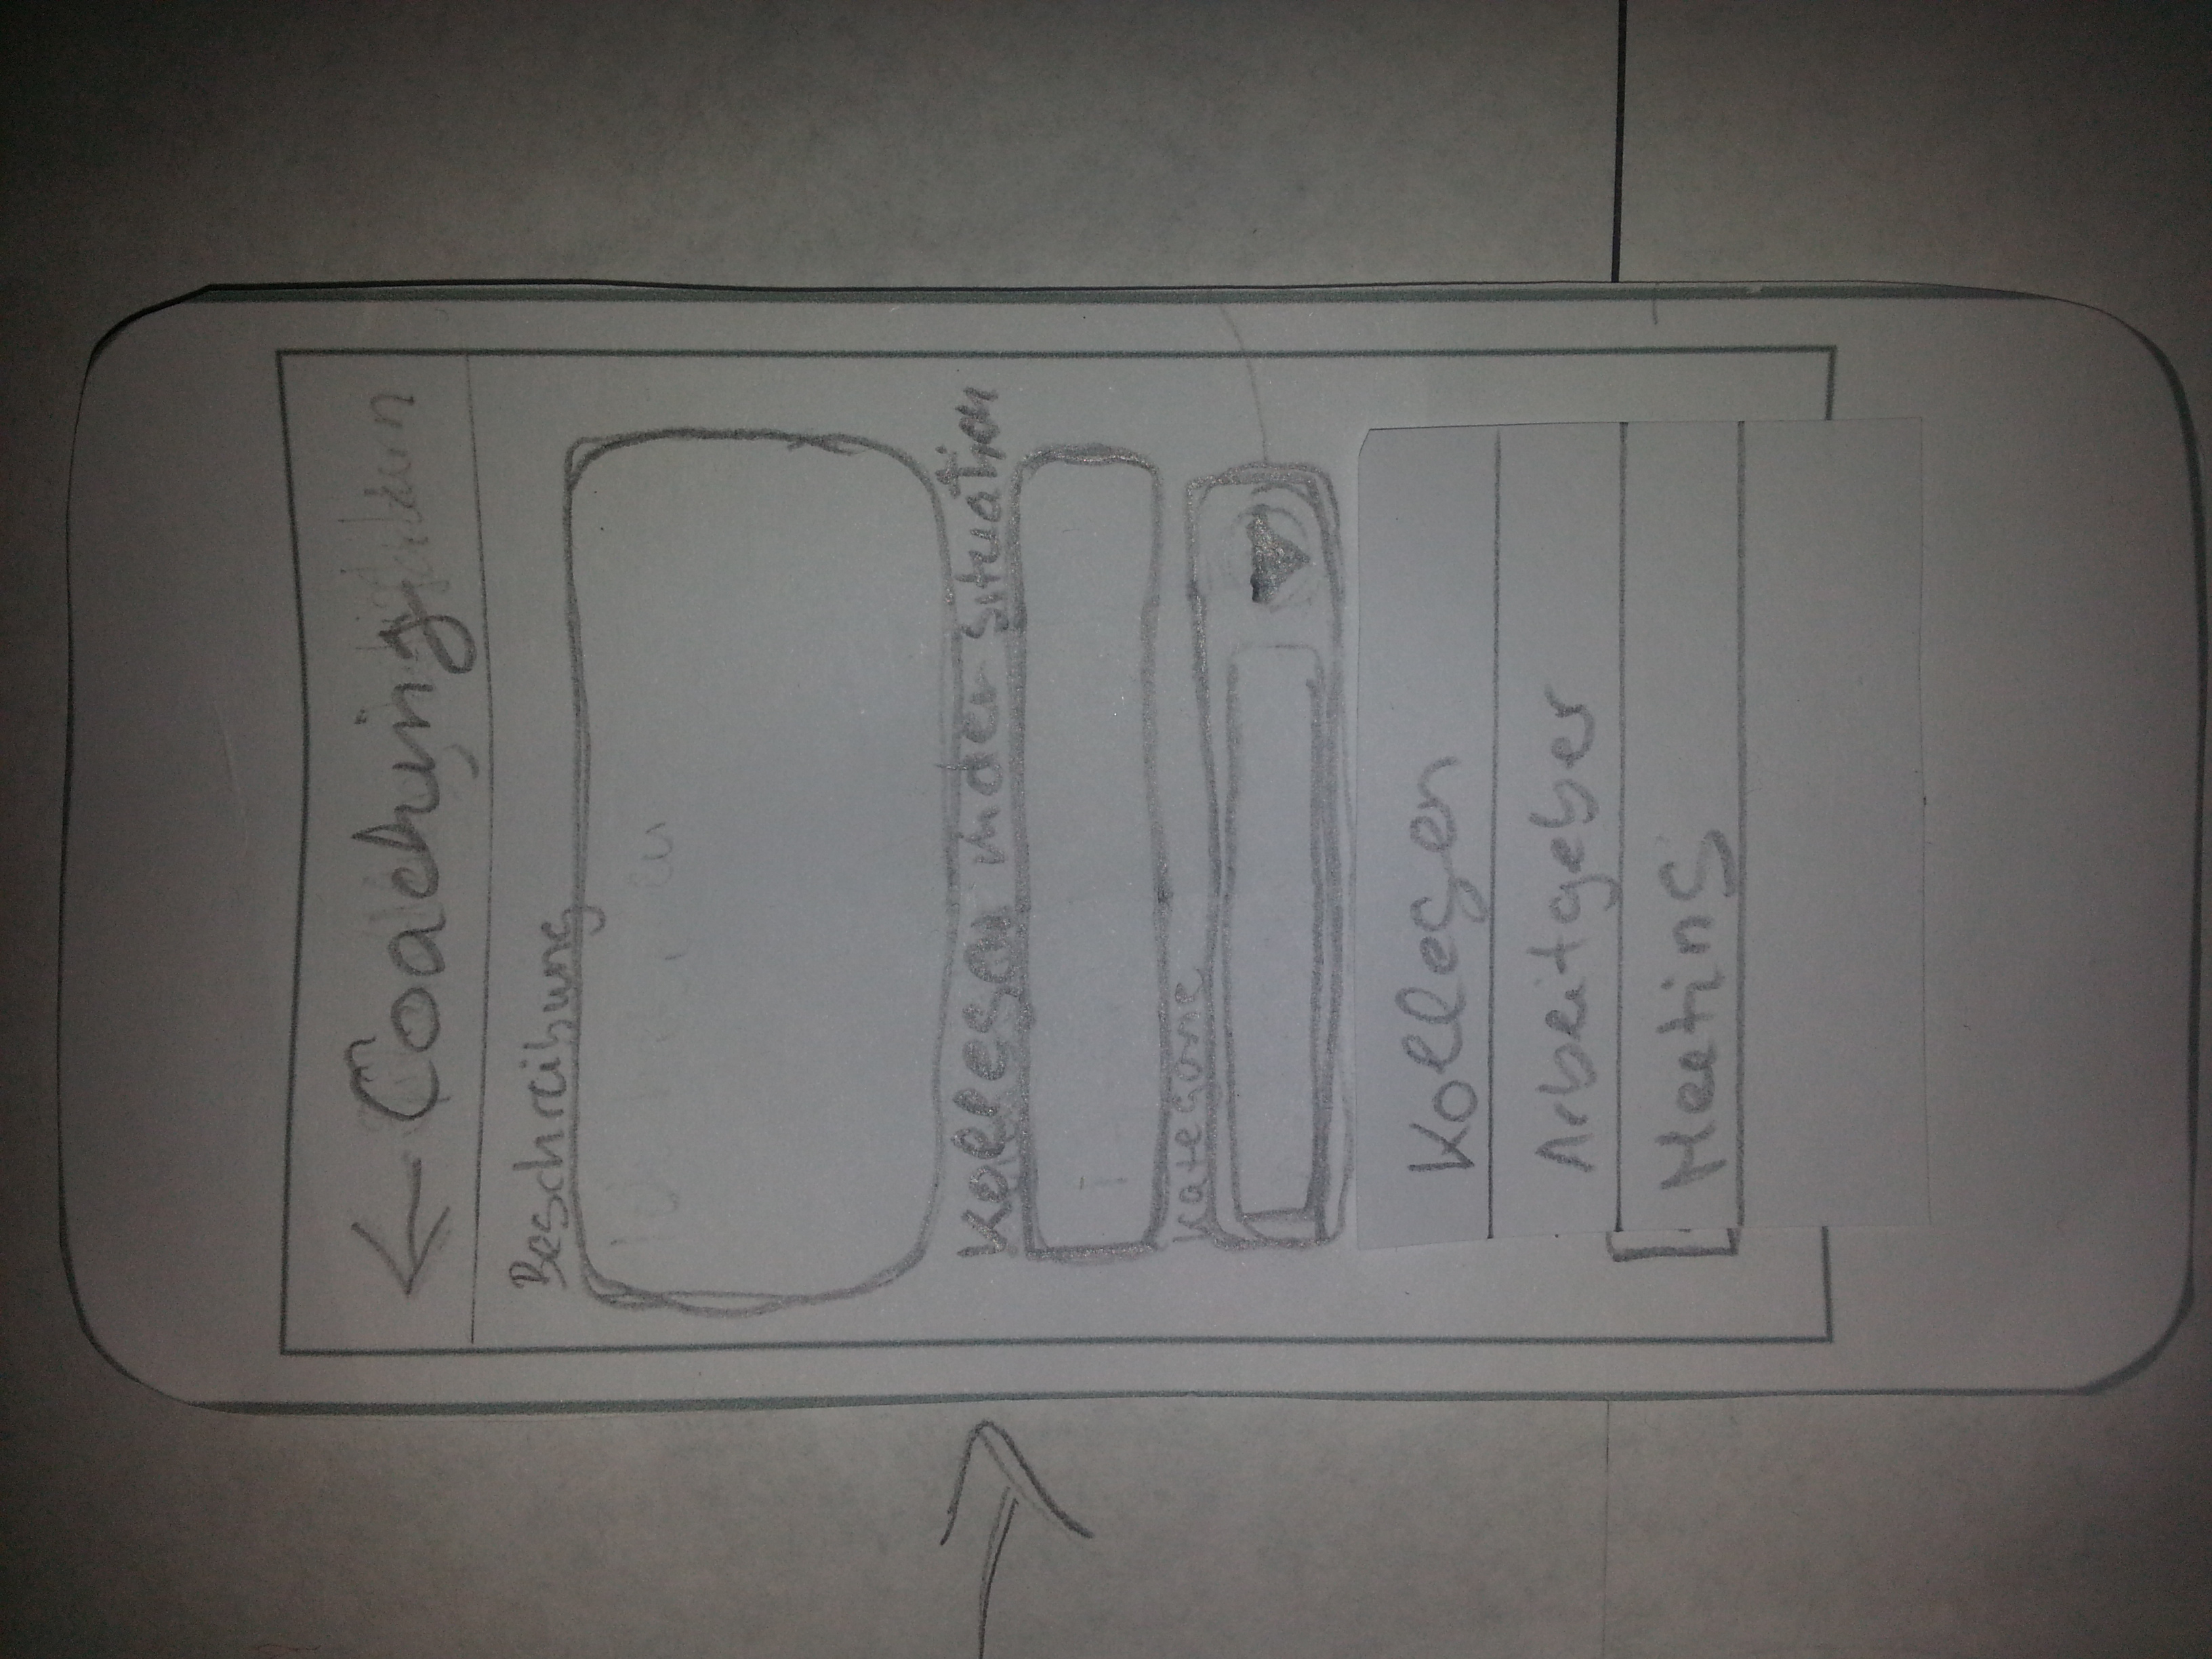 ← Coaching
Beschreibung
Kollegen in der Situation
Kategorie
Kollegen
Arbeitgeber
Meeting